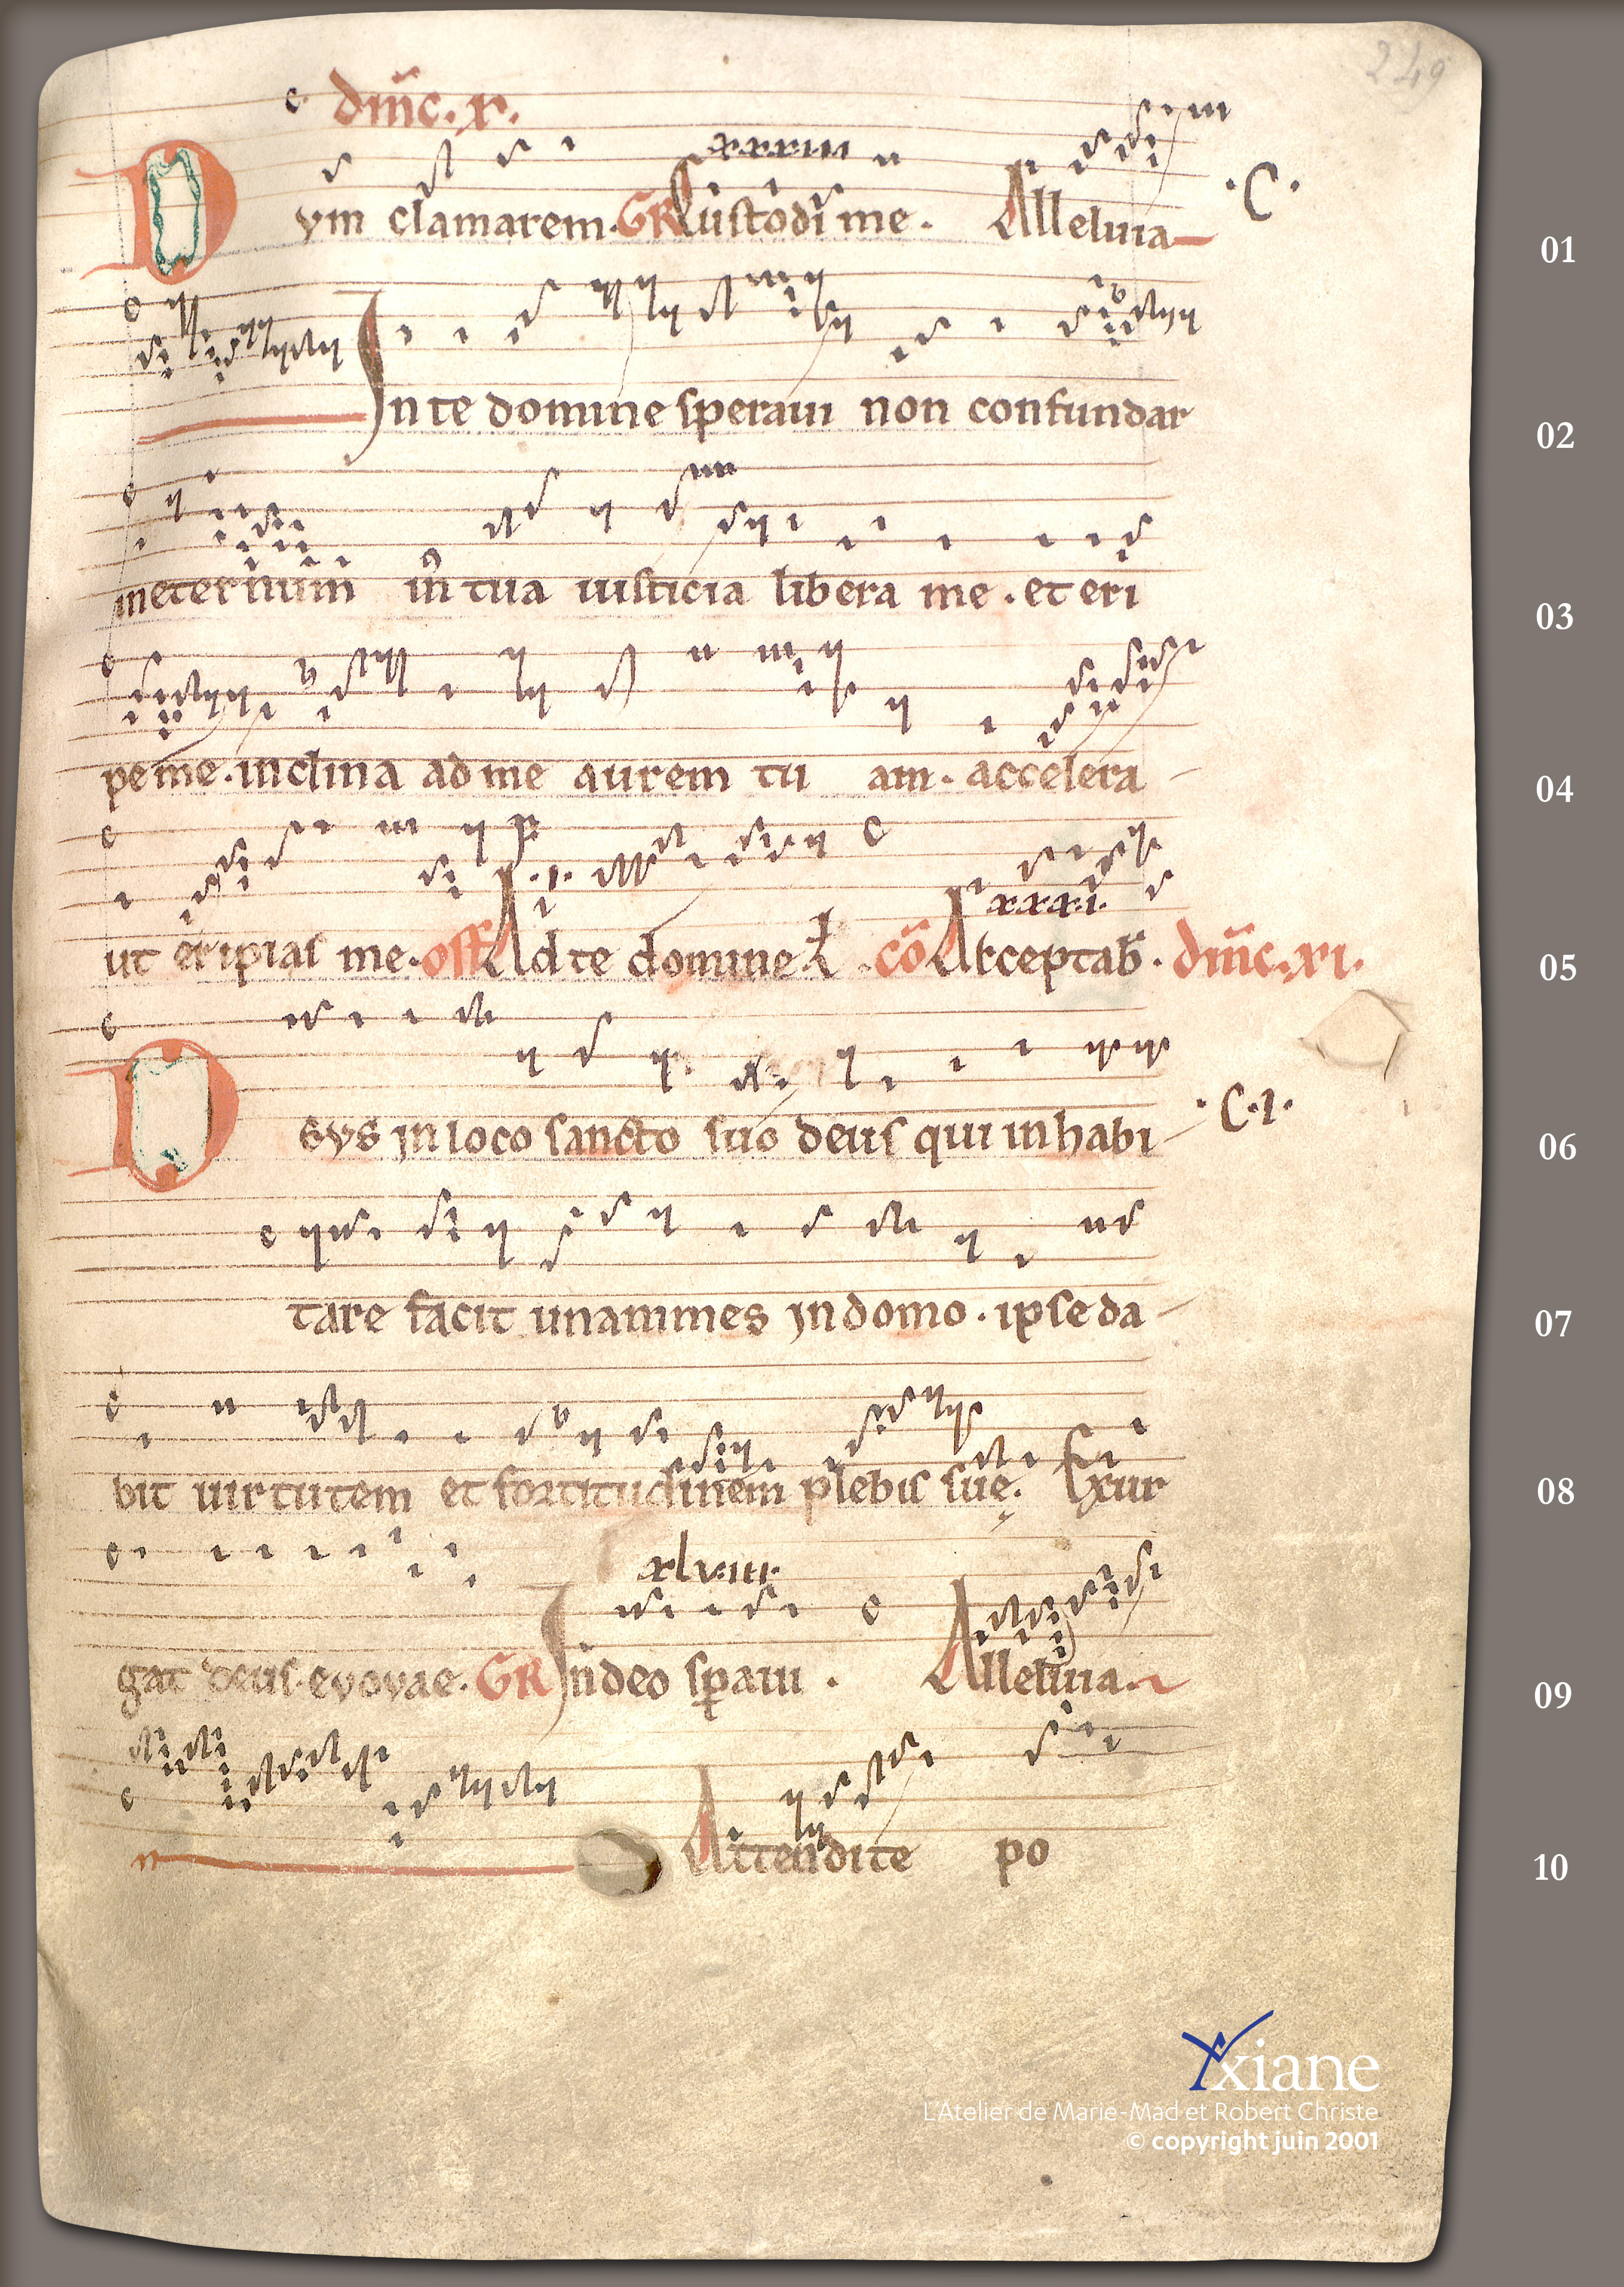 249
c. dm̄c. x.
xxxiii
Dvm clamarem. GR Custodi me. Alleluia
.C.
01
In te domine speraui non confundar
02
in eternum in tua iusticia libera me. et eri
03
pe me. inclina ad me aurem tu am. accelera-
04
.i.
xxxi.
ut eripias me. off Ad te domine l. cō Acceptab̄. dm̄c. xi.
05
Devs in loco sancto suo deus qui inhabi-
.C.i.
06
tare facit unanimes in domo. ipse da-
07
bit uirtutem et fortitudinem plebis suę. Exur
08
xlviii.
gat deus. evovae. GR In deo sp̄aui. Alleluia.
09
Attendite po
10
xiane
L'Atelier de Marie-Mad et Robert Christe
© copyright juin 2001